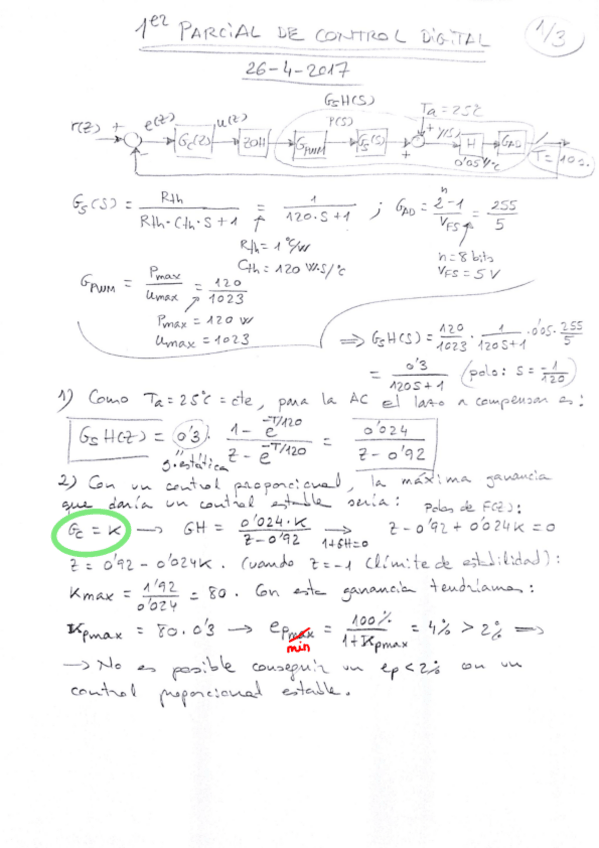 1er PARCIAL DE CONTROL DIGITAL
1/3
26-4-2017
GsH(s)
Ta=25ºC
r(z) + e(z) u(z) P(s) + y(s)
Gc(z) ZOH GPWM Gs(s) H GAD
- + 0'05 V/ºC T=10s.
Gs(s) = Rth / (Rth·Cth·s+1) = 1 / (120·s+1) ; GAD = (2^n-1) / VFS = 255/5
Rth=1 ºC/W
Cth=120 W·s/ºC
n=8 bits
VFS=5V
GPWM = Pmax/umax = 120/1023
Pmax=120 W
umax=1023
⇒ GsH(s) = 120/1023 · 1/(120s+1) · 0'05 · 255/5
= 0'3/(120s+1) (polo: s = -1/120)
1) Como Ta=25ºC=cte, para la AC el lazo a compensar es:
GsH(z) = 0'3 · (1-e^(-T/120)) / (z-e^(-T/120)) = 0'024/(z-0'92)
g. estática
2) Con un control proporcional, la máxima ganancia
que daría un control estable sería: Polos de F(z):
Gc=K → GH = 0'024·K/(z-0'92) → 1+GH=0 z-0'92+0'024K=0
z=0'92-0'024K. Cuando z=-1 (límite de estabilidad):
Kmax = 1'92/0'024 = 80. Con esta ganancia tendríamos:
Kpmax = 80·0'3 → epmax = 100%/(1+Kpmax) = 4% > 2% ⇒
min
→ No es posible conseguir un ep<2% con un
control proporcional estable.